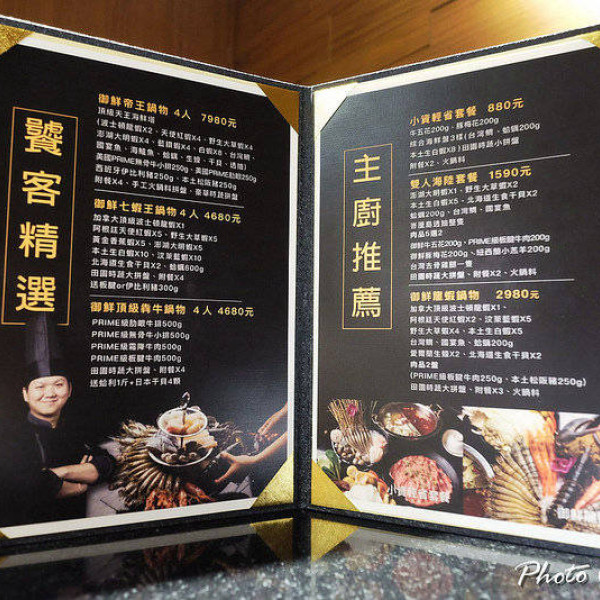 饕客精選
御鮮帝王鍋物 4人 7980元
頂級天王海鮮塔
(波士頓龍蝦X2、天使紅蝦X4、野生大草蝦X4
澎湖大明蝦X4、藍鑽蝦X4、白蝦X8、台灣鯛、
國宴魚、海鱺魚、蛤蜊、生蠔、干貝、透抽)
美國PRIME無骨牛小排250g、美國PRIME肋眼250g
西班牙伊比利豬250g、本土松阪豬250g
附餐X4、手工火鍋料拼盤、豪華時蔬拼盤
御鮮七蝦王鍋物 4人 4680元
加拿大頂級波士頓龍蝦X1、
阿根廷天使紅蝦X5、野生大草蝦X5
黃金香蕉蝦X5、澎湖大明蝦X5
本土生白蝦X10、汶萊藍蝦X10
北海道生食干貝X2、蛤蜊600g
田園時蔬大拼盤、附餐X4
送板腱or伊比利豬300g
御鮮頂級犇牛鍋物 4人 4680元
PRIME級肋眼牛排500g
PRIME級無骨牛小排500g
PRIME級霜降牛肉500g
PRIME級板腱牛肉500g
田園時蔬大拼盤、附餐X4
送蛤利1斤+日本干貝4顆
主廚推薦
小資輕省套餐 880元
牛五花200g、豚梅花200g
綜合海鮮盤3樣(台灣鯛、蛤蠣200g
本土生白蝦X8)田園時蔬小拼盤
附餐X2、火鍋料
雙人海陸套餐 1590元
澎湖大明蝦X1、野生大草蝦X2
本土生白蝦X5、北海道生食干貝X2
蛤蠣200g、台灣鯛、國宴魚
峇里島透抽整隻
肉品5選2
御鮮牛五花200g、PRIME級板腱牛肉200g
御鮮豚梅花200g、紐西蘭小羔羊200g
台灣古骨雞腿一隻
田園時蔬大拼盤、附餐X2、火鍋料
御鮮龍蝦鍋物 2980元
加拿大頂級波士頓龍蝦X1、
阿根廷天使紅蝦X2、汶萊藍蝦X5
野生大草蝦X4、本土生白蝦X5
台灣鯛、國宴魚、蛤蠣200g
愛爾蘭生蠔X2、北海道生食干貝X2
肉品2盤
(PRIME級板腱牛肉250g、本土松阪豬250g)
田園時蔬大拼盤、附餐X3、火鍋料
小資輕省套餐
御鮮
Photo